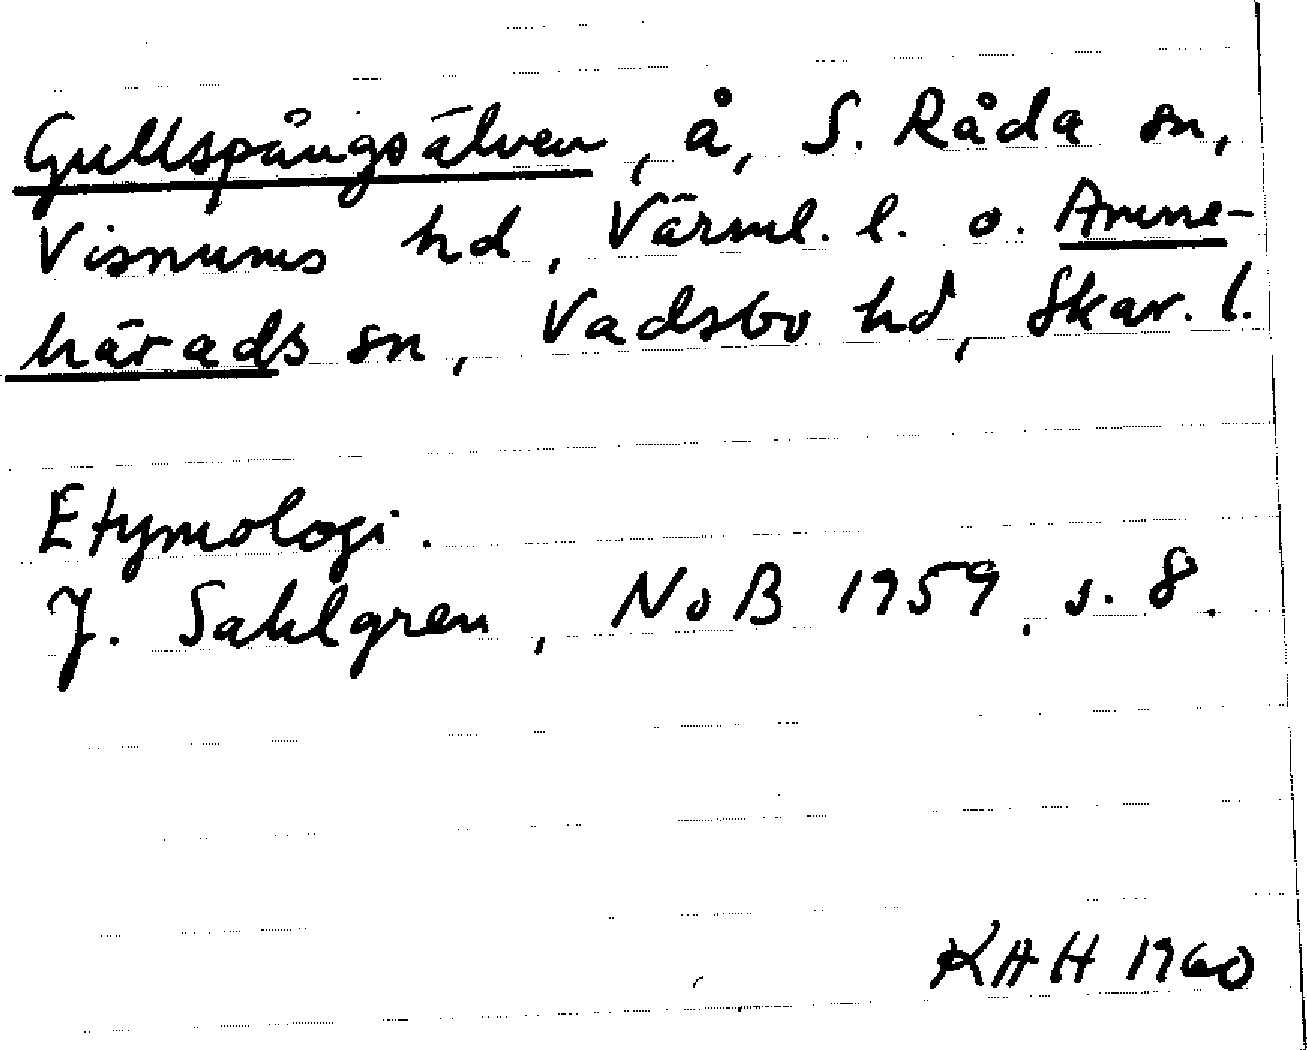 Gullspångsälven, å, S. Råda sn,
Visnums hd, Värml. l. o. Amne-
härads sn, Vadsbo hd, Skar. l.
Etymologi.
J. Sahlgren, NoB 1959, s. 8.
KAH 1960